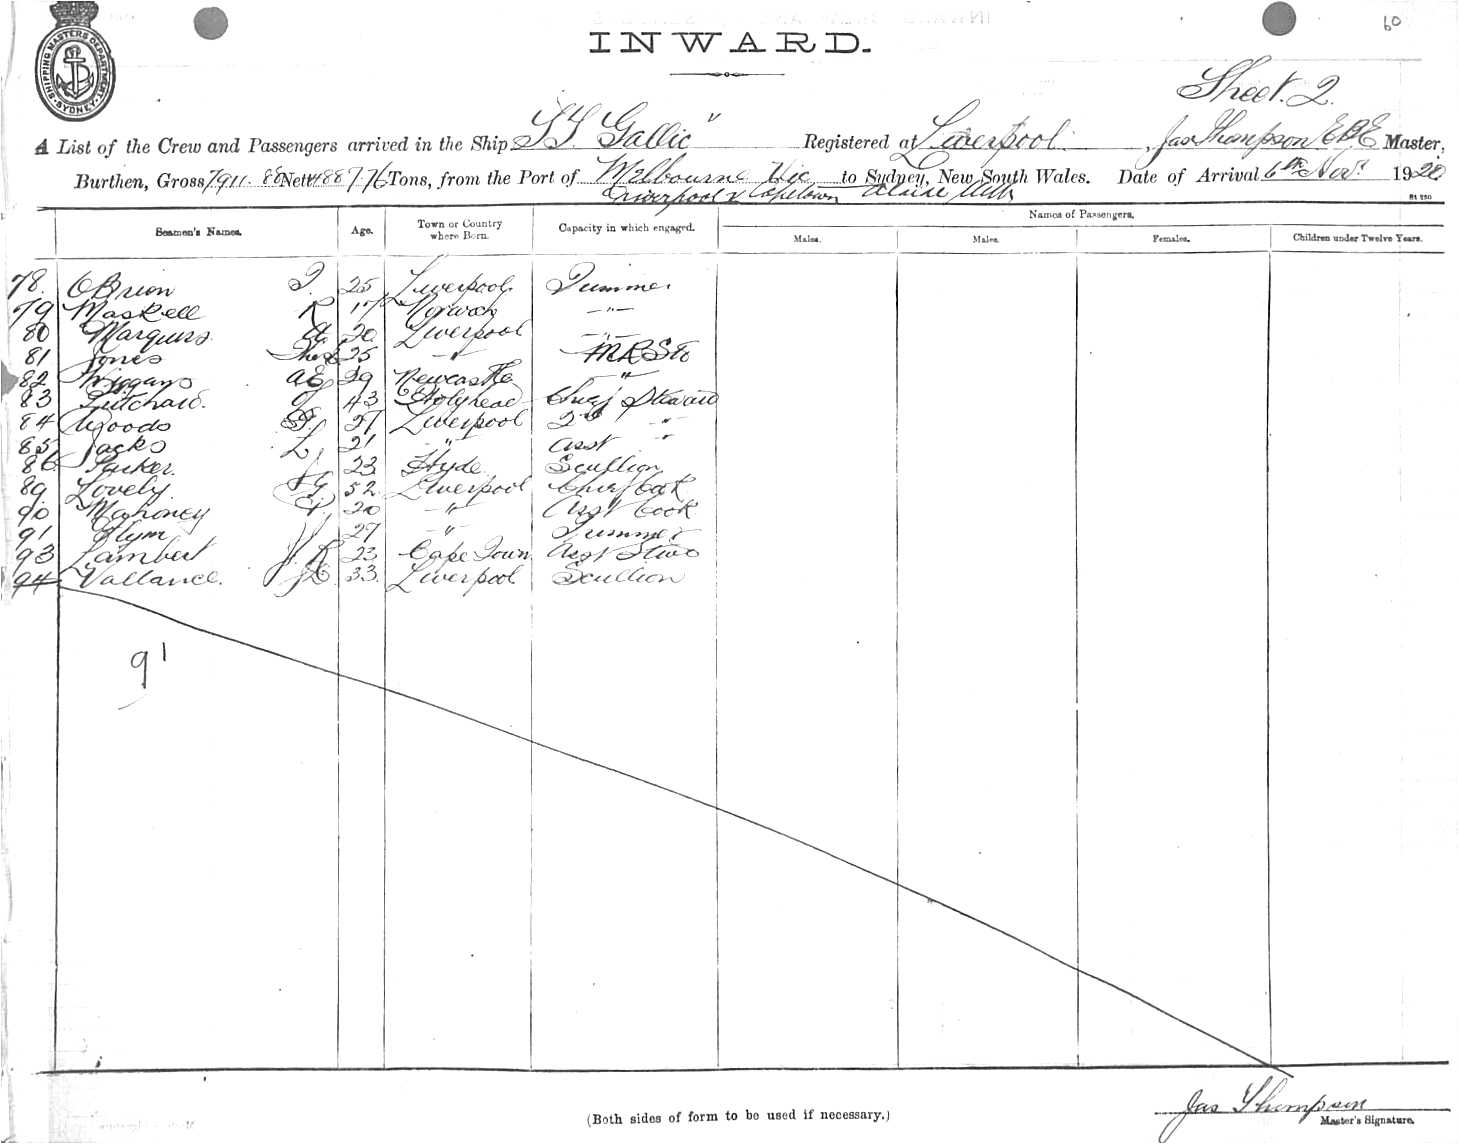 60
INWARD.
SHIPPING MASTERS DEPARTMENT SYDNEY
Sheet. 2.
A List of the Crew and Passengers arrived in the Ship SS Gallic" Registered at Liverpool. Jas Thompson Master,
Burthen, Gross 7911.88 Nett 4887.76 Tons, from the Port of Melbourne Vic to Sydney, New South Wales. Date of Arrival 6th Nov. 1920
Liverpool & Capetown
Seamen's Names. Age. Town or Country where Born. Capacity in which engaged. Names of Passengers.
Males. Males. Females. Children under Twelve Years.
78. OBrien 25 Liverpool Trimmer
79 Maskell R 17 Norwich -"-
80 Marquis A 20 Liverpool -"-
81 Jones Thos 25 -"-
82 Wiggans AE 29 Newcastle "
83 Pritchard. 43 Holyhead Chief Steward
84 Woods 27 Liverpool 2nd "
85 Jacks L 21 " Asst "
86 Parker. J 23 Hyde Scullion
89 Lovely. 52 Liverpool Chief Cook
90 Mahoney 20 -"- Asst Cook
91 Flynn 27 -"- Trimmer
93 Lambert R 23 Cape Town Asst Stwd
94 Vallance. 33. Liverpool Scullion
91
Jas Thompson
Master's Signature.
(Both sides of form to be used if necessary.)